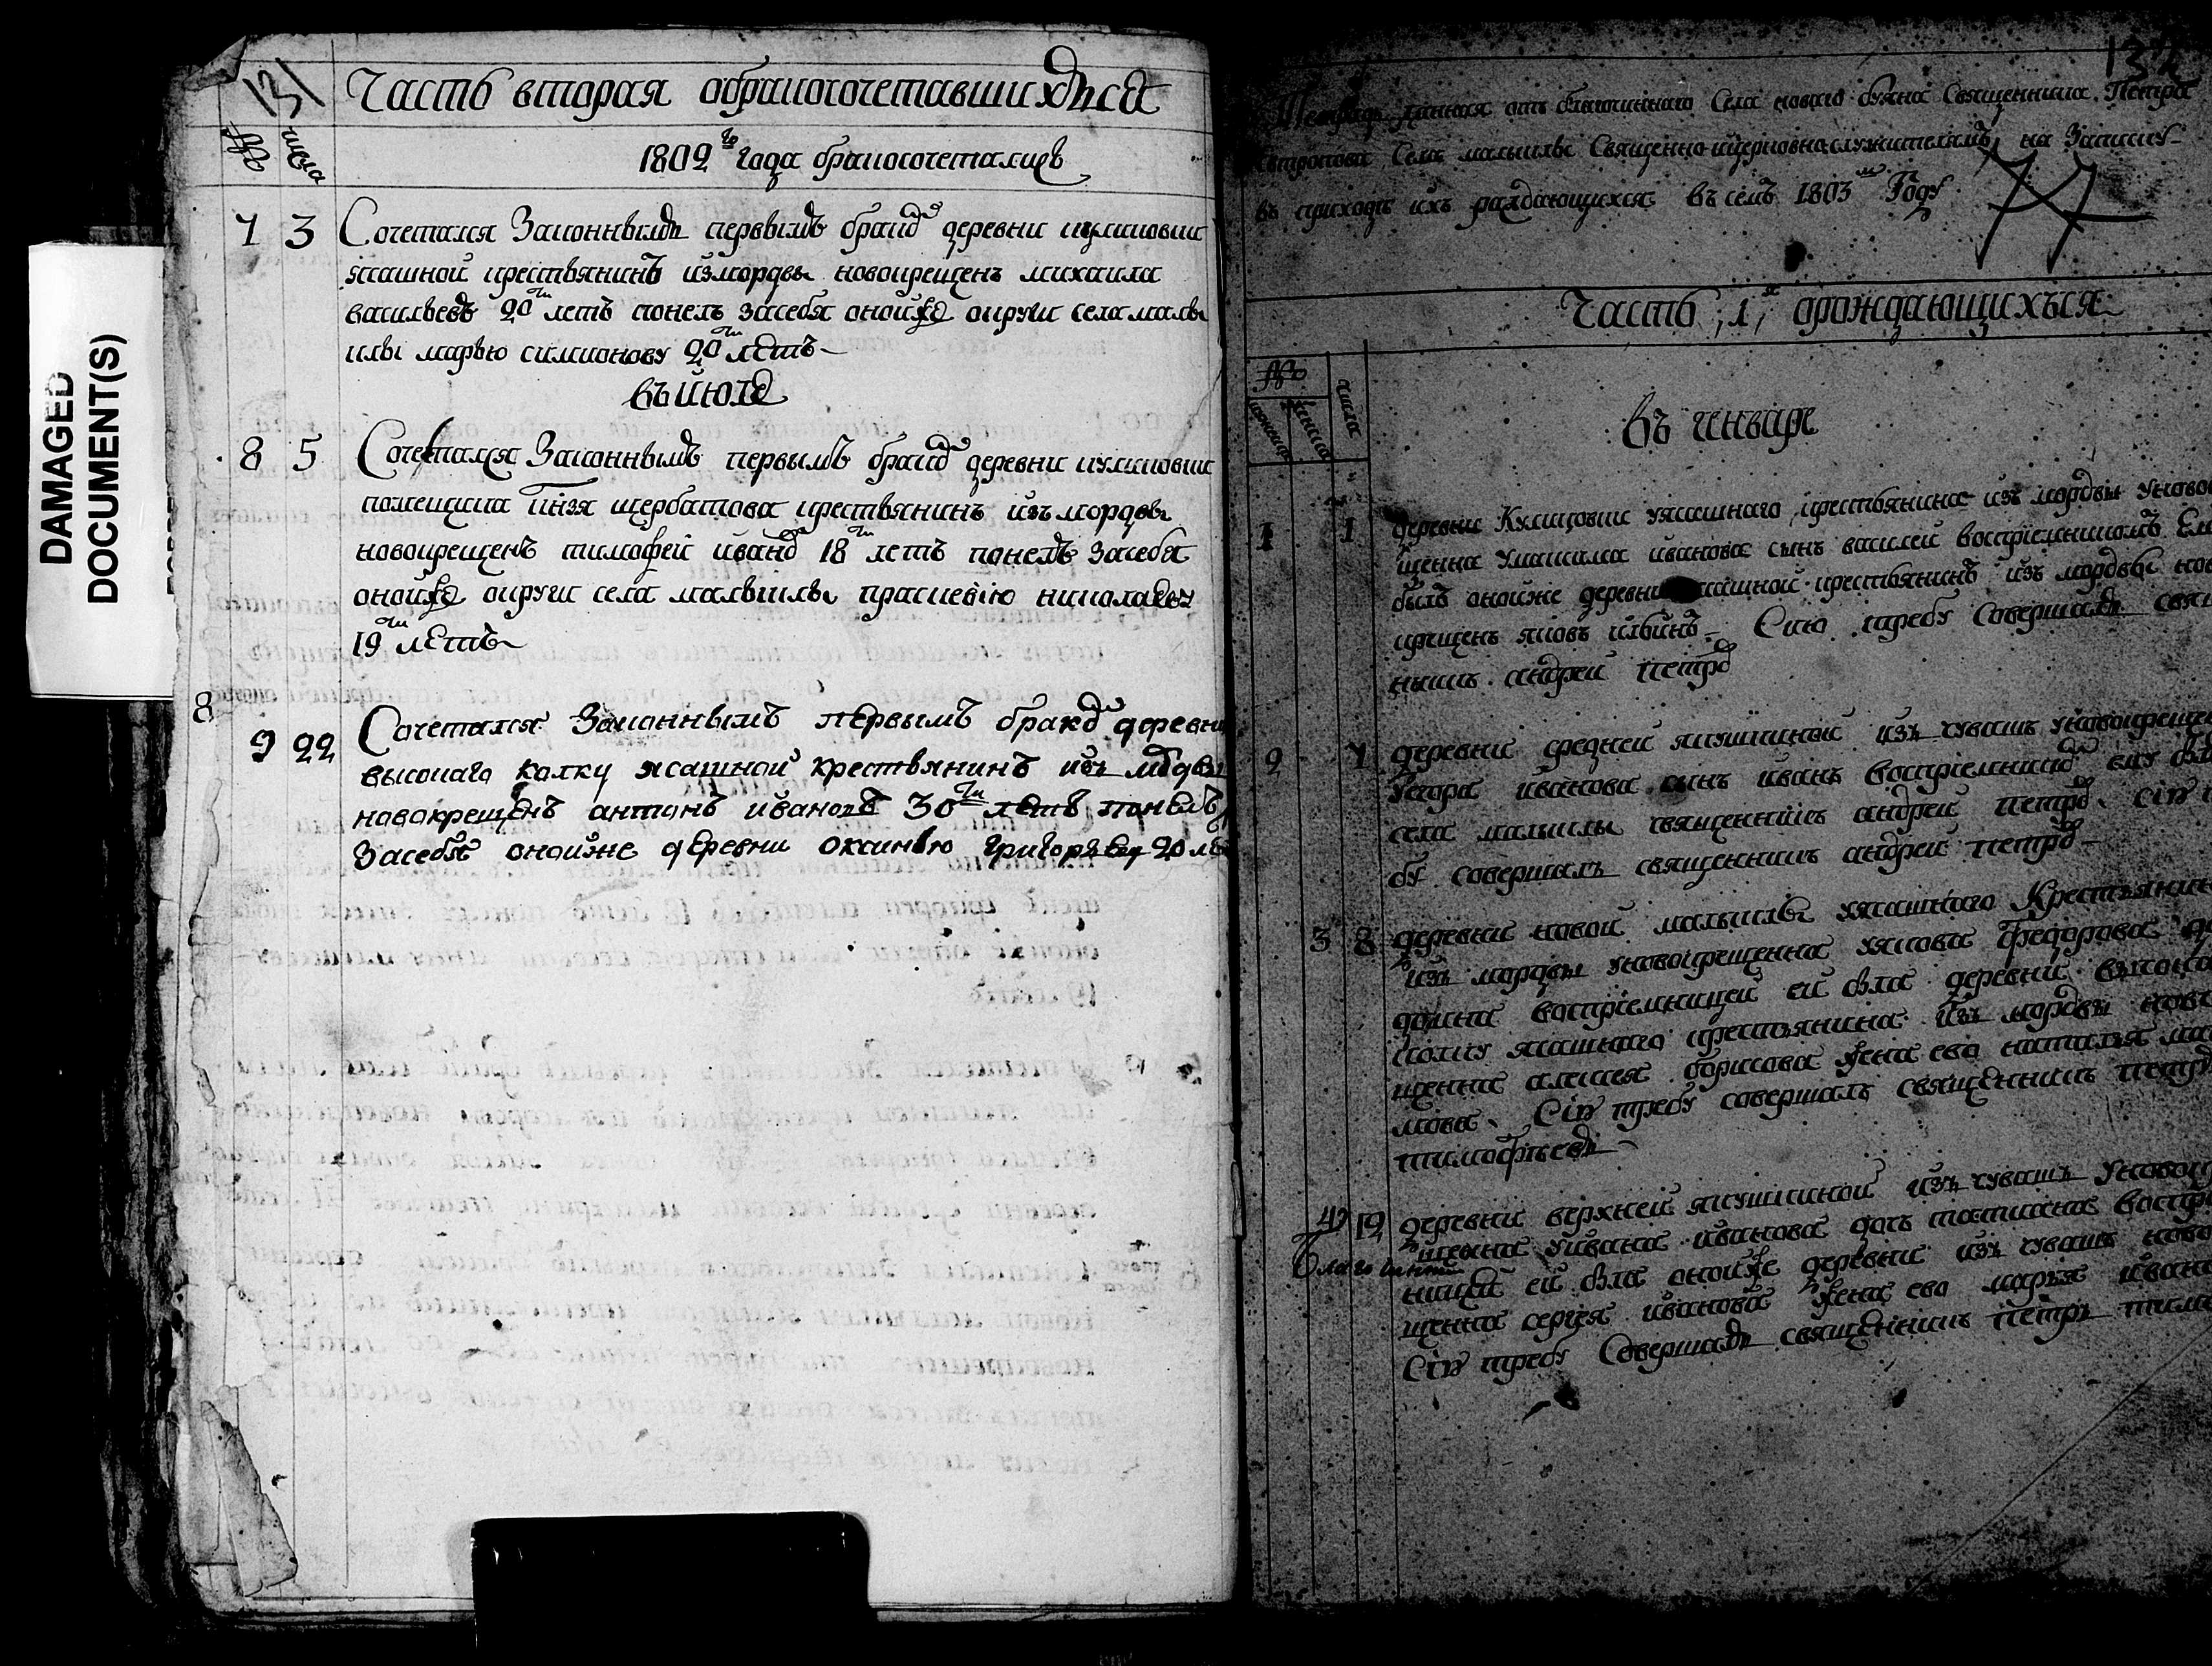 DAMAGED
DOCUMENT(S)
131
Часть вторая обракосочетавшихъся
№ числа
1802го года бракосочеталисъ
7 3 Сочетался Законнымъ первымъ бракомъ деревни куликовки
ясашной крестьянинъ изморды новокрещенъ михаила
васильевъ 20ти летъ понелъ засебя онойже округи села малы
клы марью симионову 20ти летъ
въ июле
8 5 Сочетался Законнымъ первымъ бракомъ деревни куликовки
помещика князя щербатова крестьянинъ изъ морды
новокрещенъ тимофей ивановъ 18ти летъ понелъ засебя
онойже округи села малыклы прасковию николаеву
19ти летъ
8
9 22 Сочетался Законнымъ первымъ бракомъ деревни
высокаго колку ясашной крестьянинъ изъ мордвы
новокрещенъ антонъ ивановъ 30ти летъ понелъ
Засебя онойже деревни оксинью григорьеву 20 ле
132
Тетрадь данная отъ благочиннаго Села новаго буяна Священника Петра
Села малыклы Священно ицерковнослужителямъ на Записку
въ приходе ихъ раждающихся въ семъ 1803м Году
77
Часть 1я орождающихъся
№ числа
мужеска женска
въ генваре
1 1 деревни Куликовки уясашнаго крестьянина изъ мордвы уново
щенна умаксима иванова сынъ василей восприемникомъ Ем
былъ онойже деревни ясашной крестьянинъ изъ мордвы нов
крещенъ яковъ ильинъ Сию требу Совершалъ свящ
никъ андрей петровъ
2 7 деревни средней якушкиной изъ чувашъ уновокрещен
Уегора иванова сынъ иванъ восприемникомъ ему былъ
села малыклы священникъ андрей петровъ сию т
бу совершалъ священникъ андрей петровъ
3 8 деревни новой малыклы уясашнаго Крестьянина
изъ мордвы уновокрещенна уякова Федорова до
домна восприемницей ей была деревни высока
колку ясашнаго крестьянина изъ мордвы новок
щенна алексея борисова жена ево наталья ма
мова Сию требу совершалъ священникъ петръ
тимофеевъ
4 12 деревни верхней якушкиной изъ чувашъ уновок
щенна уивана иванова дочь татиана воспри
Благочинный
ницей ей была онойже деревни изъ чувашъ ново
щенна сергея иванова жена ево марья ивано
Сию требу Совершалъ священникъ петръ тимо